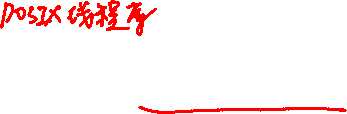 POSIX线程库